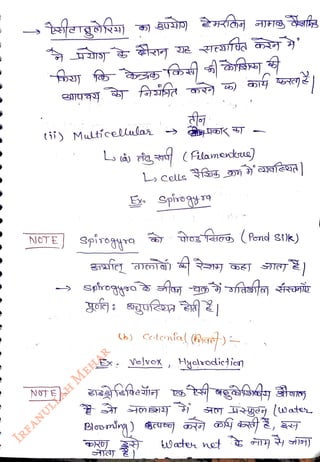 → ऐसीटाबुलेरिया का उपयोग हैमरलिन नामक वैज्ञानिक
ने प्रयोग के दौरान यह सत्यापित करने में
किया कि केन्द्रक किसी भी कोशिका की
उपापचय को नियंत्रित करने का कार्य करता है।
(ii) Multicellular → तीन प्रकार का -
↳ (a) तंतु रूपी (Filamentous)
↳ Cells रैखिक क्रम में व्यवस्थित।
Ex. Spirogyra
NOTE Spirogyra को पोण्ड सिल्क (Pond Silk)
अर्थात् तालाबों की रेशम कहा जाता है।
→ Spirogyra के जीवन चक्र में गतिशील संरचनाएँ
पूर्णतः अनुपस्थित होती हैं।
(b) Colonial :-
Ex. Volvox, Hydrodiction
NOTE हाइड्रोडिक्टियॉन एक ऐसी बहुकोशिकीय शैवाल
है जो जलाशय में जल प्रस्फुटन (Water
Blooming) उत्पन्न करने कार्य करती है, इस
कारण इसे Water net के नाम से जाना
जाता है।
IRFANULLAH MEHAR